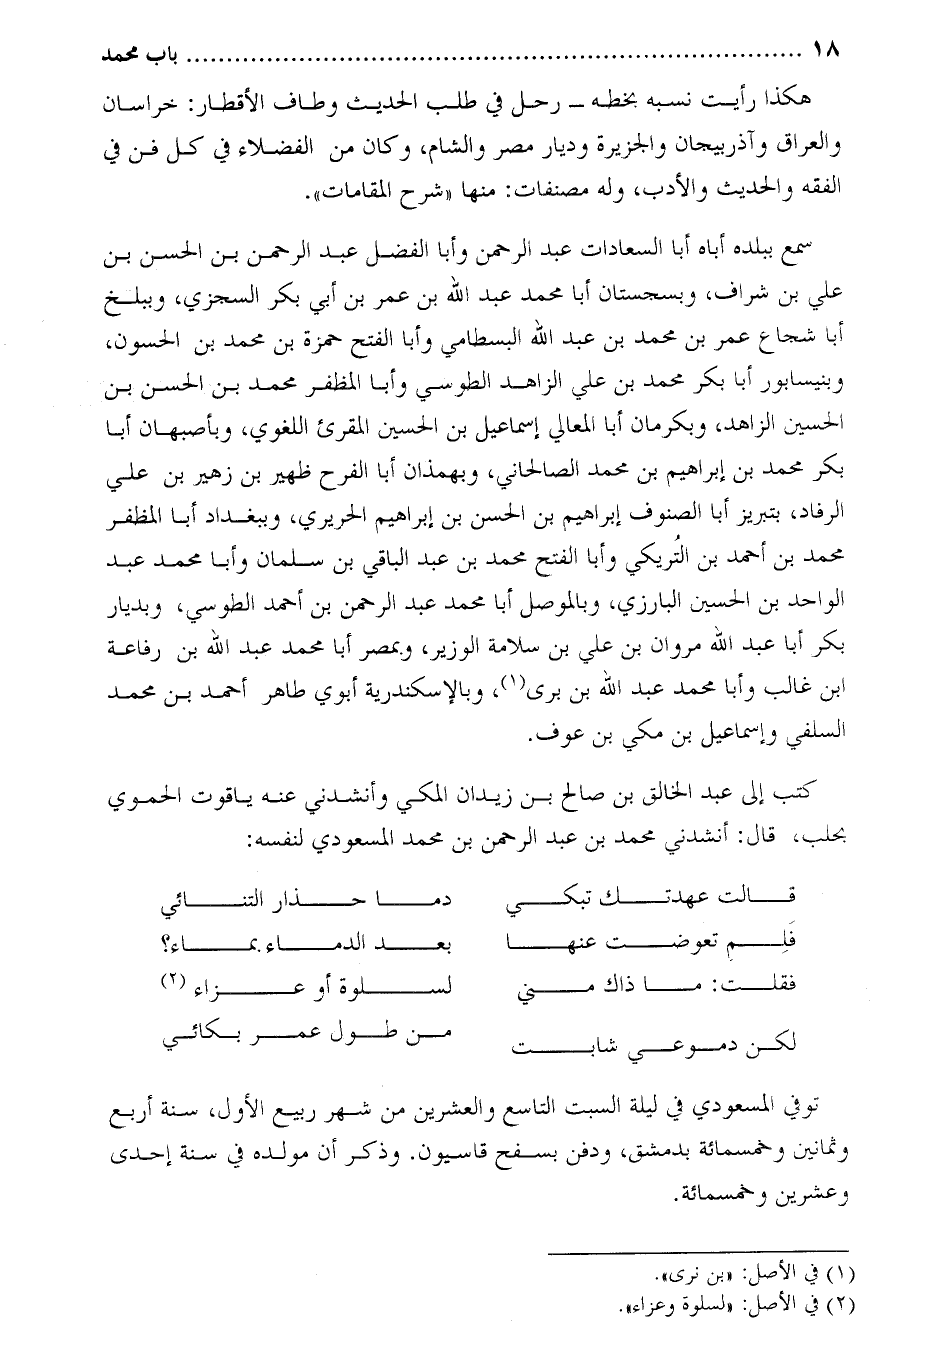 ١٨ ........................................ باب محمد
هكذا رأيت نسبه بخطه ــ رحل في طلب الحديث وطاف الأقطار: خراسان
والعراق وآذربيجان والجزيرة وديار مصر والشام، وكان من الفضلاء في كل فن في
الفقه والحديث والأدب، وله مصنفات: منها «شرح المقامات».
سمع ببلده أباه أبا السعادات عبد الرحمن وأبا الفضل عبد الرحمن بن الحسن بن
علي بن شراف، وبسجستان أبا محمد عبد الله بن عمر بن أبي بكر السجزي، وببلخ
أبا شجاع عمر بن محمد بن عبد الله البسطامي وأبا الفتح حمزة بن محمد بن الحسون،
وبنيسابور أبا بكر محمد بن علي الزاهد الطوسي وأبا المظفر محمد بن الحسن بن
الحسين الزاهد، وبكرمان أبا المعالي إسماعيل بن الحسين المقرئ اللغوي، وبأصبهان أبا
بكر محمد بن إبراهيم بن محمد الصالحاني، وبهمذان أبا الفرح ظهير بن زهير بن علي
الرفاد، بتبريز أبا الصنوف إبراهيم بن الحسن بن إبراهيم الحريري، وببغداد أبا المظفر
محمد بن أحمد بن التُريكي وأبا الفتح محمد بن عبد الباقي بن سلمان وأبا محمد عبد
الواحد بن الحسين البارزي، وبالموصل أبا محمد عبد الرحمن بن أحمد الطوسي، وبديار
بكر أبا عبد الله مروان بن علي بن سلامة الوزير، وبمصر أبا محمد عبد الله بن رفاعة
ابن غالب وأبا محمد عبد الله بن برى(١)، وبالإسكندرية أبوي طاهر أحمد بن محمد
السلفي وإسماعيل بن مكي بن عوف.
كتب إلى عبد الخالق بن صالح بن زيدان المكي وأنشدني عنه ياقوت الحموي
بحلب، قال: أنشدني محمد بن عبد الرحمن بن محمد المسعودي لنفسه:
قالت عهدتك تبكي دما حذار التنائي
فلِم تعوضت عنها بعد الدماء بماء؟
فقلت: ما ذاك مني لسلوة أو عزاء (٢)
لكن دموعي شابت من طول عمر بكائي
توفي المسعودي في ليلة السبت التاسع والعشرين من شهر ربيع الأول، سنة أربع
وثمانين وخمسمائة بدمشق، ودفن بسفح قاسيون. وذكر أن مولده في سنة إحدى
وعشرين وخمسمائة.
(١) في الأصل: «بن نرى».
(٢) في الأصل: «لسلوة وعزاء».